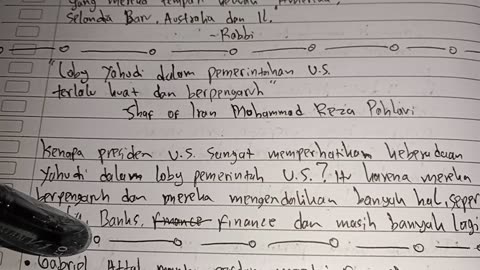 yang mereka tempati
Selandia Baru, Australia dan
~ Rabbi
"Loby Yahudi dalam pemerintahan U.S.
terlalu kuat dan berpengaruh"
Shaf of Iran Mohammad Reza Pahlavi
Kenapa presiden U.S. Sangat memperhatikan keberadaan
Yahudi dalam loby pemerintah U.S.? Itu karena mereka
berpengaruh dan mereka mengendalikan banyak hal, seper
Banks, finance finance dan masih banyak lagi
• Gabriel Attal